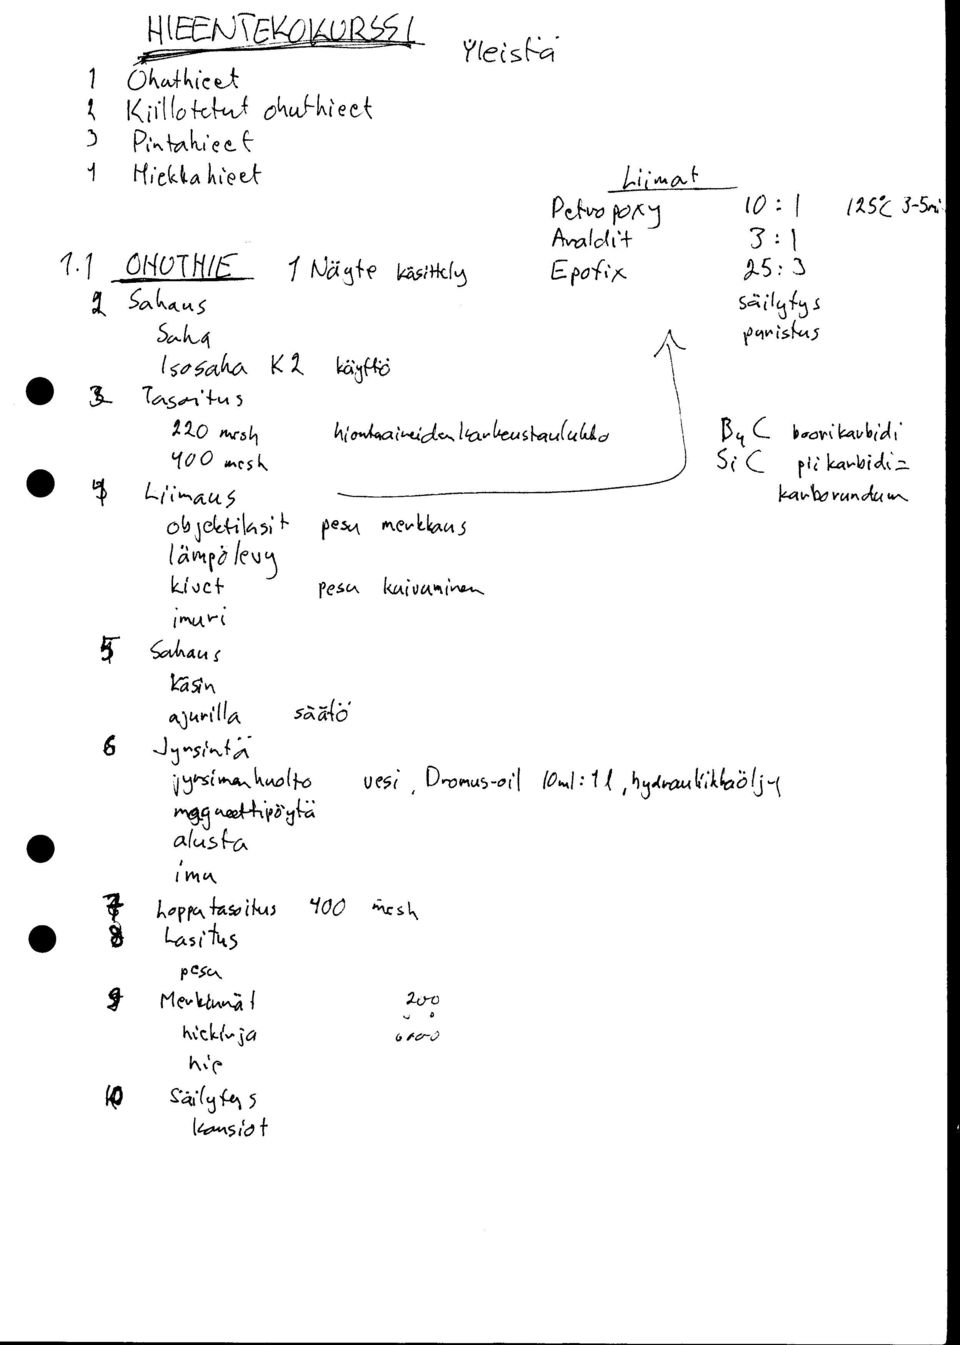 HIEENTEKOKURSSI
Yleistä
1 Ohuthieet
2 Kiillotetut ohuthieet
3 Pintahieet
4 Hiekkahieet
Liimat
Petropoxy 10 : 1 125°C 3-5mi
Araldit 3 : 1
Epofix 25 : 3
säilytys
puristus
1.1 OHUTHIE 1 Näyte käsittely
2 Sahaus
Saha
Isosaha K2 käyttö
3 Tasoitus
220 mesh hiontaaineiden karkeustaulukko
400 mesh
B4C boorikarbidi
SiC piikarbidi =
karborundum
4 Liimaus
objektilasit pesu merkkaus
lämpölevy
kivet pesu kuivuminen
imuri
5 Sahaus
käsin
ajurilla säätö
6 Jyrsintä
jyrsimen huolto vesi, Dromus-oil 10ml:1l, hydrauliikkaöljy
magneettipöytä
alusta
imu
7 Loppatasoitus 400 mesh
8 Lasitus
pesu
9 Merkinnät 200
hiekirja
hie
10 Säilytys
kansiot